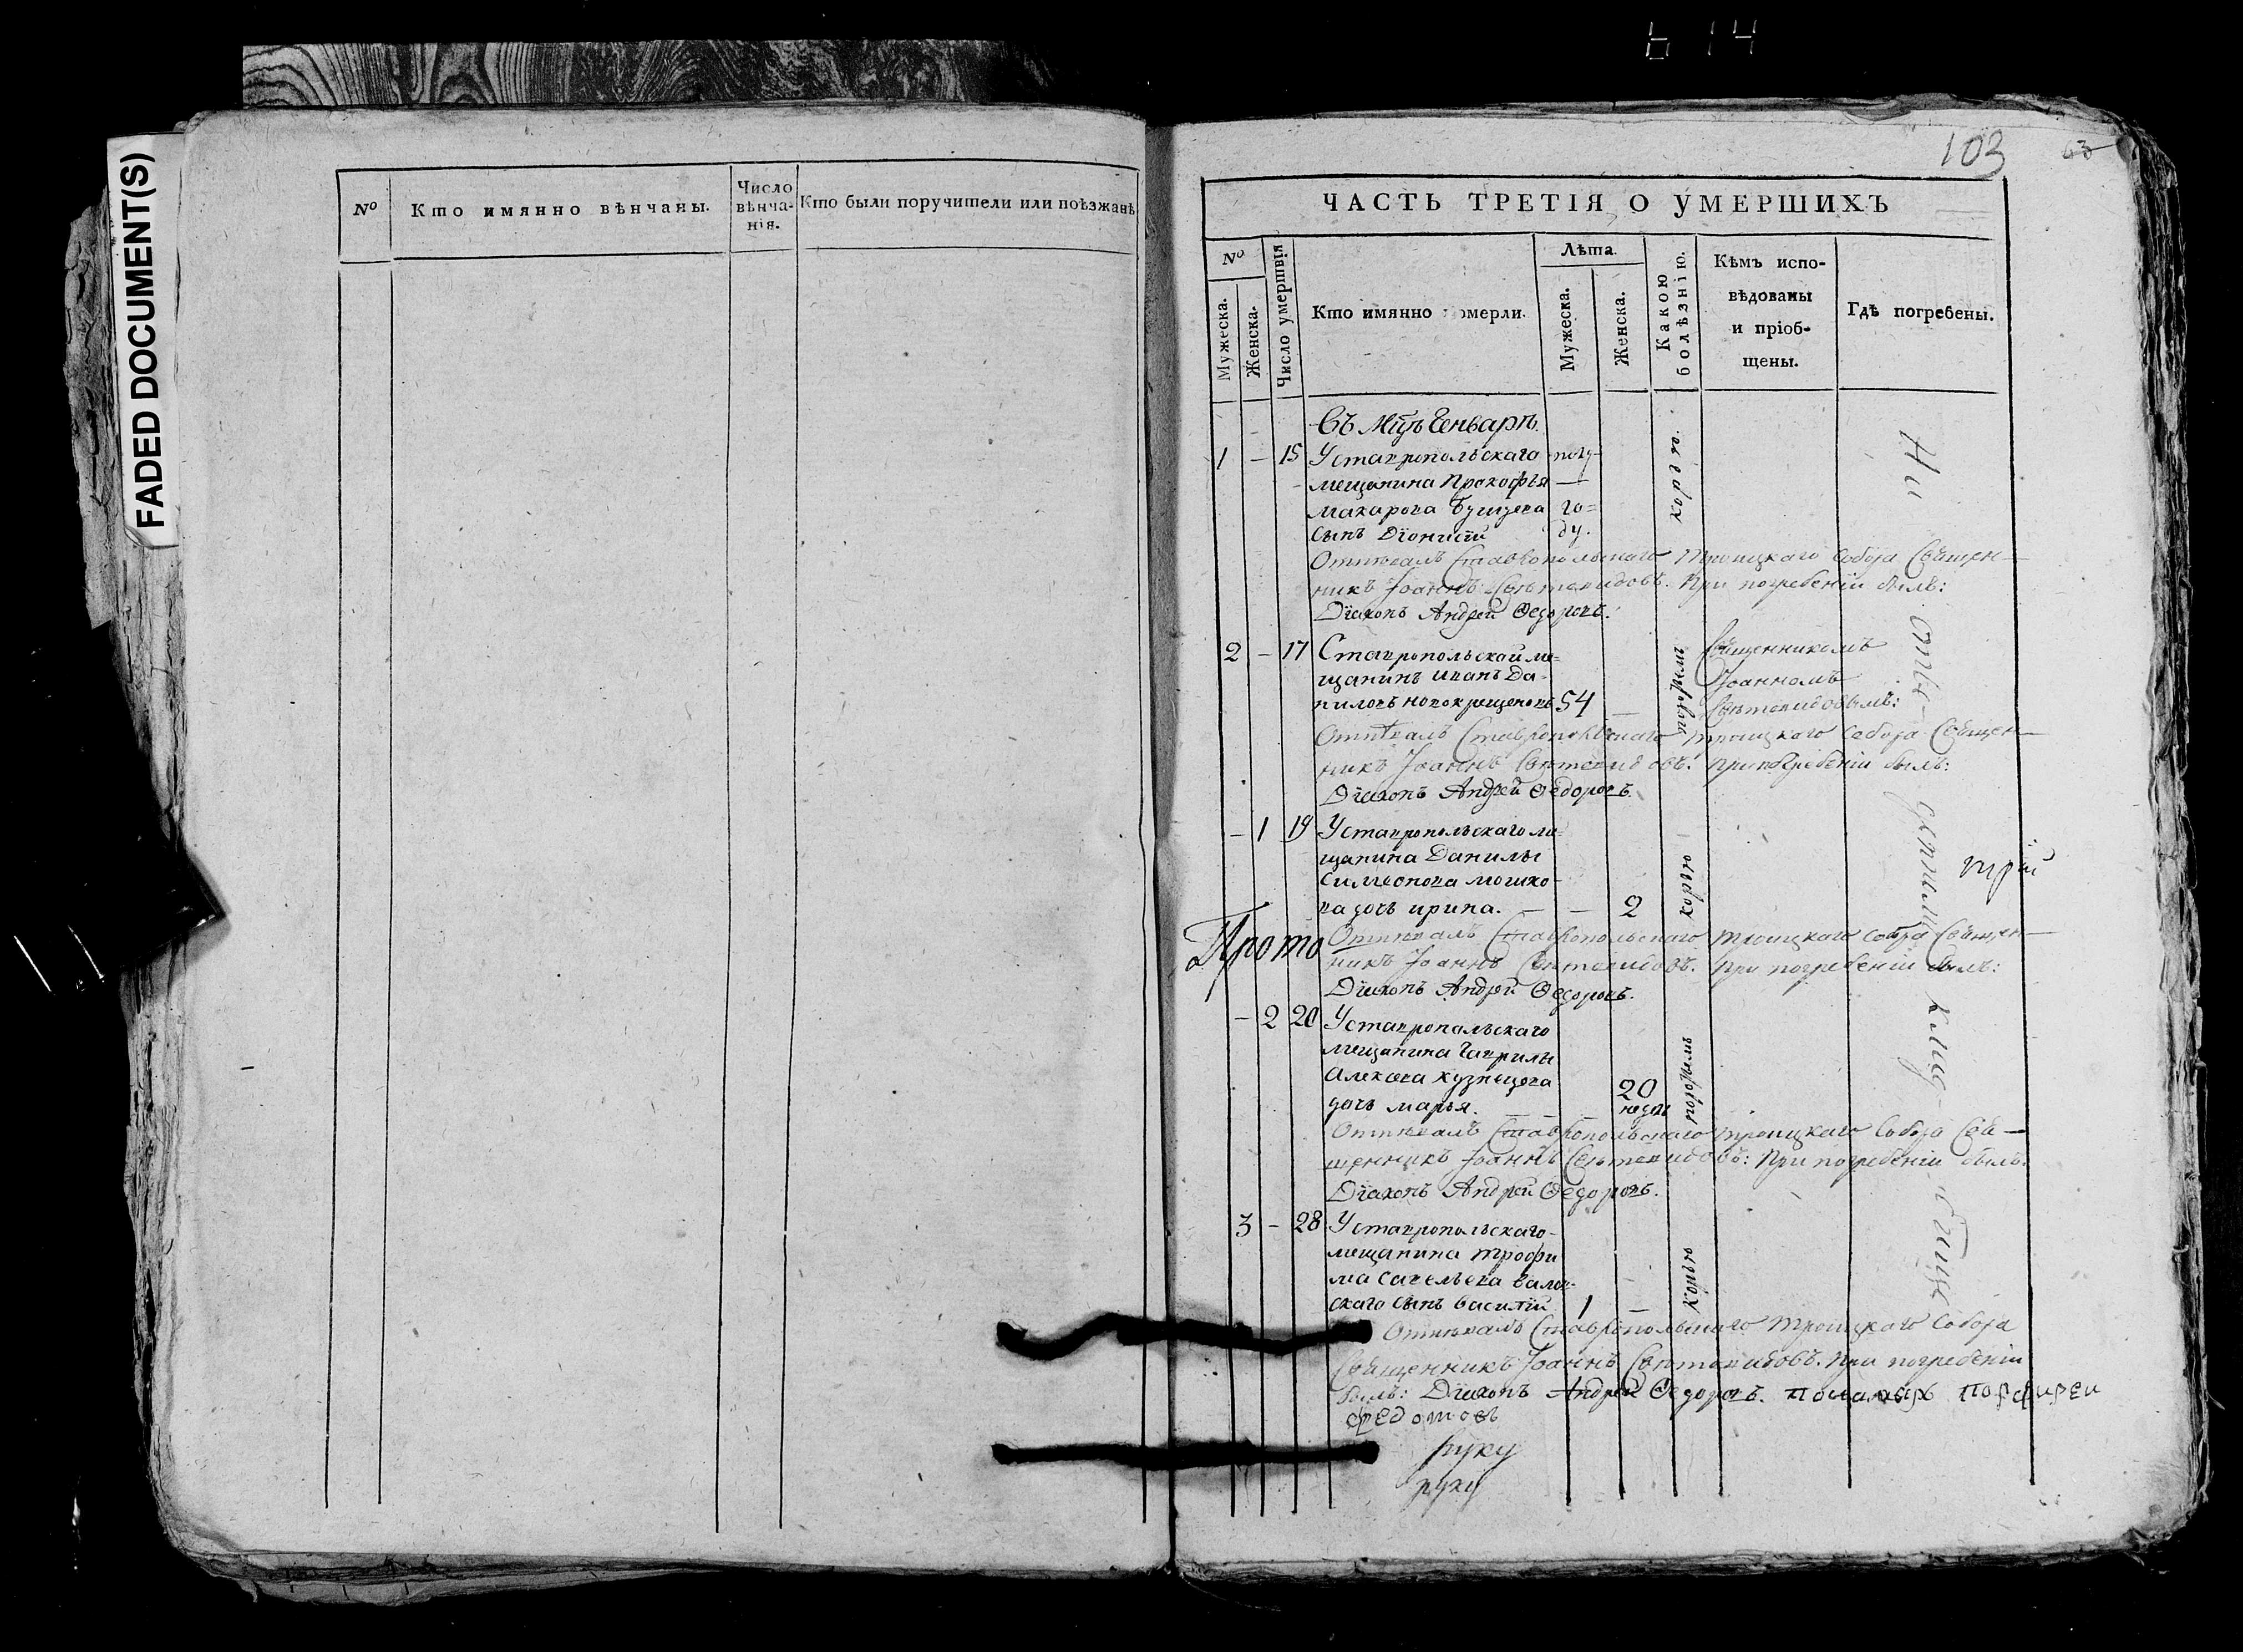 614
FADED DOCUMENT(S)
№
Кто имянно вѣнчаны.
Число
вѣнча-
нія.
Кто были поручители или поѣзжанѣ
103
63
ЧАСТЬ ТРЕТІЯ О УМЕРШИХЪ
№
Мужеска.
Женска.
Число умертвія
Кто имянно померли.
Лѣта.
Мужеска.
Женска.
Какою
болѣзнію.
Кѣмъ испо-
вѣдованы
и пріоб-
щены.
Гдѣ погребены.
Въ Мцѣ Генварѣ.
1 – 15 У Ставропольскаго полу-
мещанина Прокофья —
Макарова сынъ Діонисій го=
ду. корью.
Отпѣвалъ Ставропольскаго Троицкаго Собора Священ—
никъ Іоаннъ Свѣтовидовъ. При погребеніи былъ:
Діаконъ Андрей Ѳедоровъ.
2 – 17 Ставропольской ме=
щанинъ Иванъ Да-
ниловъ Новокрещеновъ 54 —
Священникомъ
Іоанномъ
Свѣтовидовымъ:
Отпѣвалъ Ставропольскаго Троицкаго Собора Священ—
никъ Іоаннъ Свѣтовидовъ. При погребеніи былъ:
Діаконъ Андрей Ѳедоровъ.
– 1 19 У Ставропольскаго ме-
щанина Данилы
Симеонова Мошко-
ва дочь Ирина. — — 2 корью
Прото
Отпѣвалъ Ставропольскаго Троицкаго Собора Священ—
никъ Іоаннъ Свѣтовидовъ. При погребеніи былъ:
Діаконъ Андрей Ѳедоровъ.
– 2 20 У Ставропольскаго
мещанина Гаврилы
Алексѣева Кузнецова
дочь Марья. — — 20
недѣл
Отпѣвалъ Ставропольскаго Троицкаго Собора Свя—
щенникъ Іоаннъ Свѣтовидовъ: При погребеніи былъ:
Діаконъ Андрей Ѳедоровъ.
3 – 28 У Ставропольскаго
мещанина Трофи
ма Савельева
скаго сынъ Василій 1 — корью
Отпѣвалъ Ставропольскаго Троицкаго Собора
Священникъ Іоаннъ Свѣтовидовъ. При погребеніи
былъ: Діаконъ Андрей Ѳедоровъ. Пономарь Порфирей
Федотовъ
руку
руку